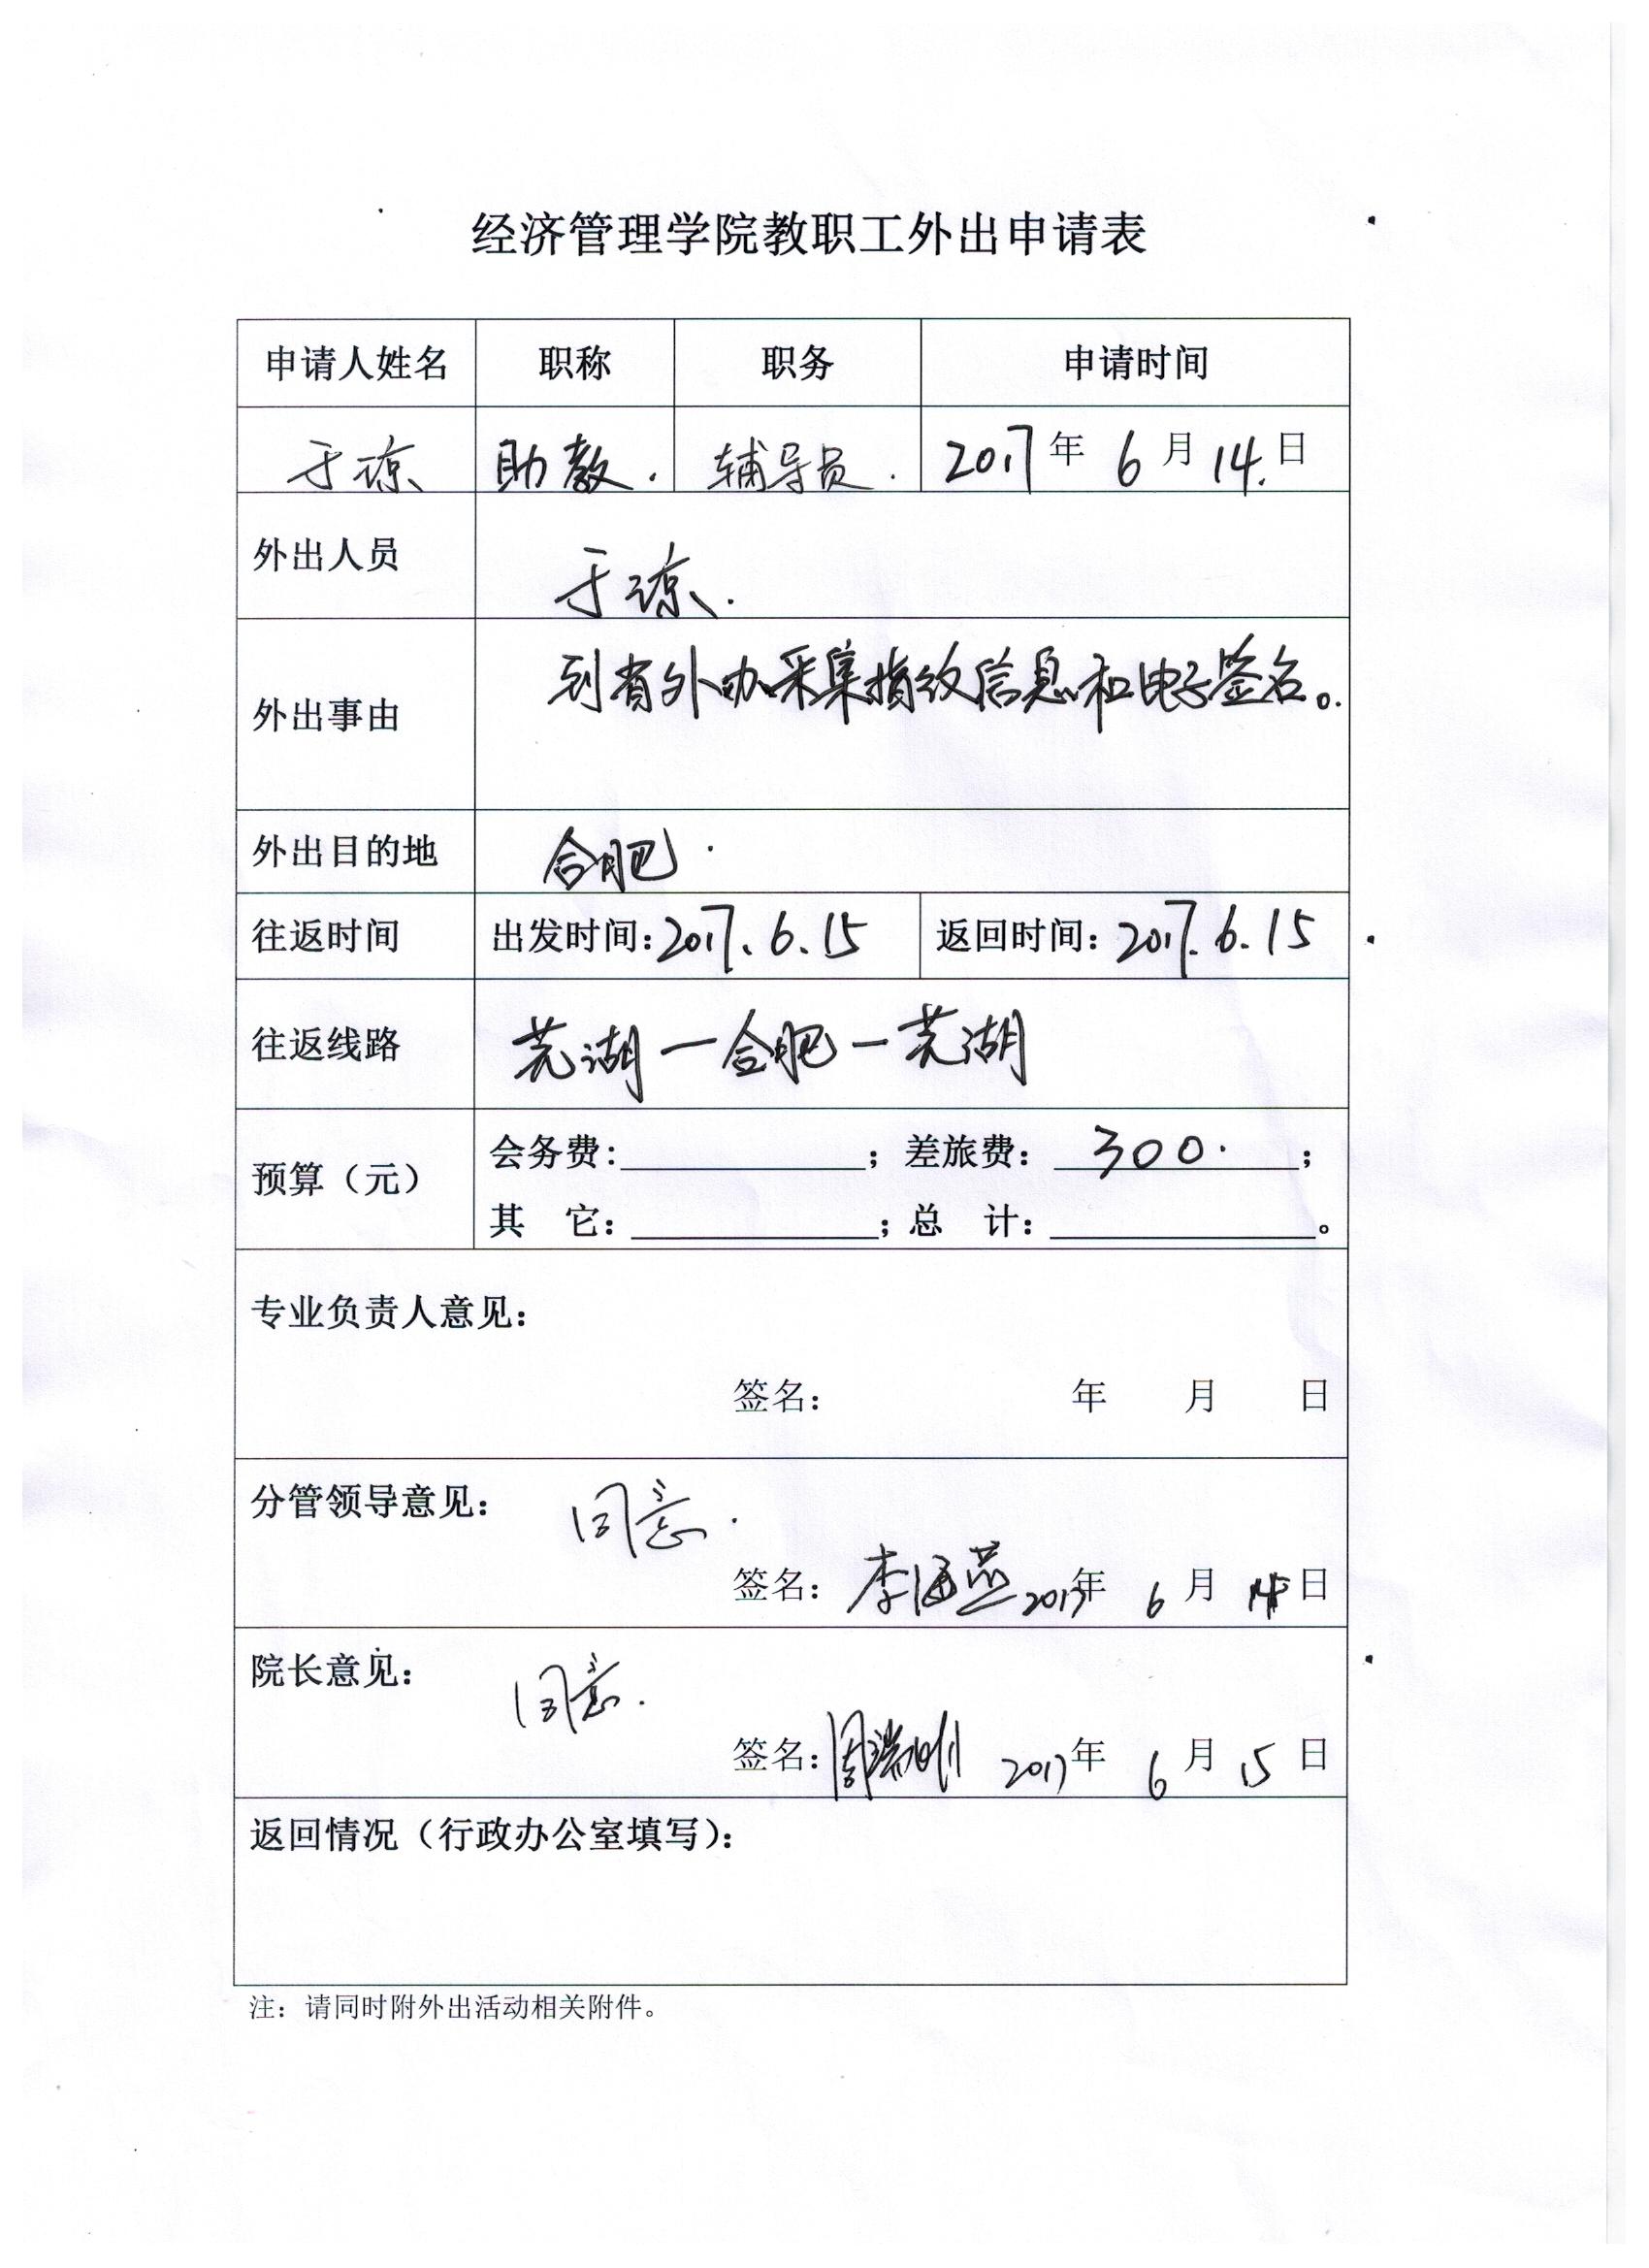 经济管理学院教职工外出申请表
申请人姓名 职称 职务 申请时间
于琼 助教. 辅导员. 2017年 6月 14.日
外出人员 于琼.
外出事由 到省外办采集指纹信息和电子签名。
外出目的地 合肥.
往返时间 出发时间:2017.6.15 返回时间:2017.6.15
往返线路 芜湖—合肥—芜湖
预算（元） 会务费: ；差旅费：300. ；
其 它： ；总 计： 。
专业负责人意见：
签名： 年 月 日
分管领导意见： 同意.
签名：李海燕 2017年 6月 日
院长意见： 同意.
签名：周端明 2017年 6月 15日
返回情况（行政办公室填写）：
注：请同时附外出活动相关附件。